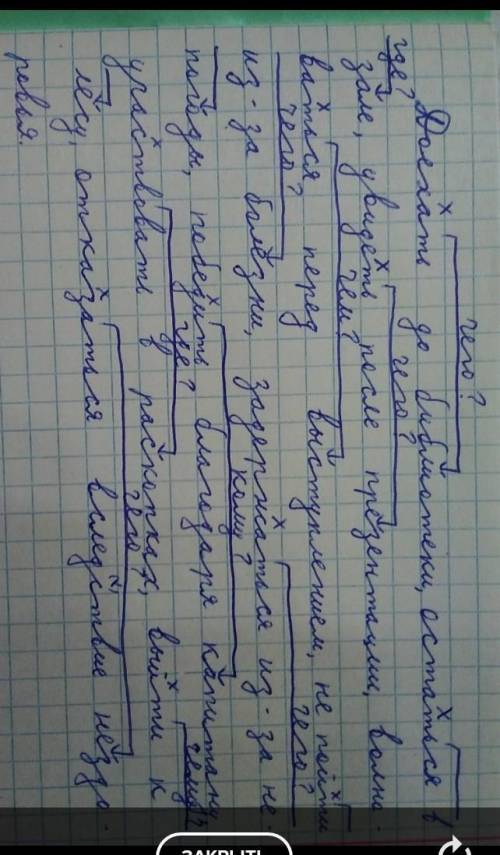 чего?
Доехать до библиотеки, остаться в
где? чего?
зале, увидеть после презентации, волно-
чем?
ваться перед выступлением, не пойти
чего? чего?
из-за болезни, задержаться из-за не
кому?
погоды, победить благодаря капитану,
где? чему?
участвовать в раскопках, выйти к
чего
лесу, отказаться вследствие нездо-
ровья.
ЗАКРЫТЬ